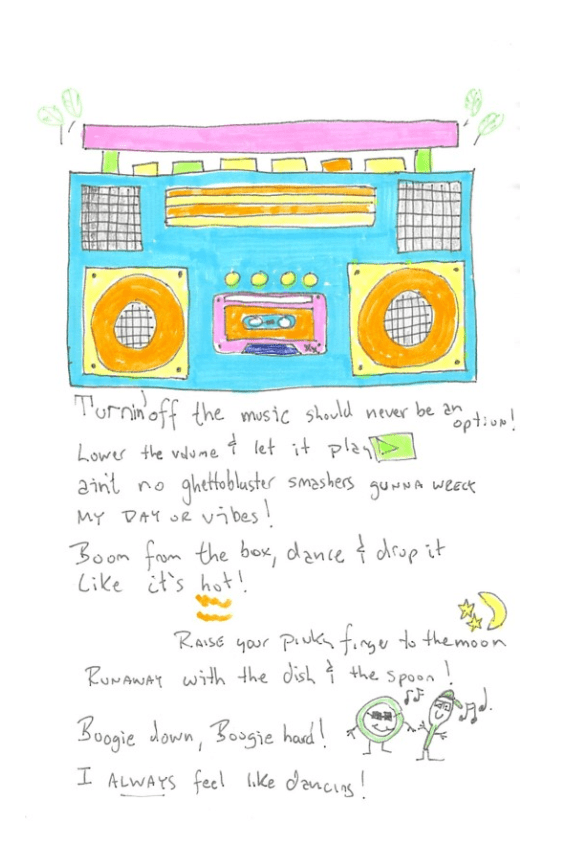 Turnin' off the music should never be an option!
Lower the volume & let it play
ain't no ghettobluster smashers gunna wreck
my day or vibes!
Boom from the box, dance & drop it
like it's hot!
Raise your pinky finger to the moon
Runaway with the dish & the spoon!
Boogie down, Boogie hard!
I ALWAYS feel like dancing!